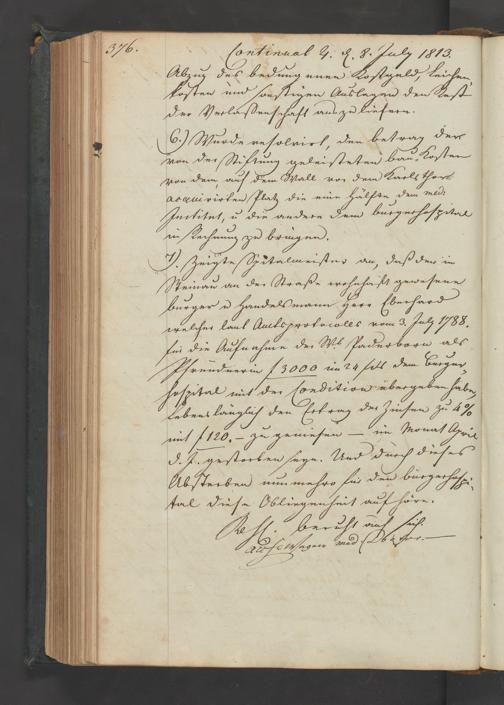 376.
Continuat. 4. d. 8. July 1813.
Abzug des bedungenen Kostgeld, Leichen
kosten und sonstigen Auslagen den Rest
der Verlassenschaft auszuliefern.
6.) Wurde resolvirt, den betrag der
von der Stiftung geleisteten bau-Kosten
von dem, auf dem Wall vor dem Karlsthor
acquirirten Platz die eine Hälfte dem med:
Institut, u die andere dem bürgerhospital
in Rechnung zu bringen.
7). Zeigte Spitalmeister an, daß der in
Steinau an der Straße wohnhaft gewesene
bürger u Handelsmann Herr Eberhard
welcher laut Amtsprotocolls vom 3. July 1788.
für die Aufnahme der Wb Paderborn als
Pfründnerin f 3000 im 24 fuß dem Bürger-
hospital mit der Condition übergeben habe,
lebenslänglich den Ertrag der Zinsen zu 4%
mit f 120.- zu geniesen – im Monat April
d. J. gestorben seye. Und durch dieses
Absterben nunmehro für den bürgerhospi-
tal diese Obliegenheit aufhöre.
Resp. beruht auf sich